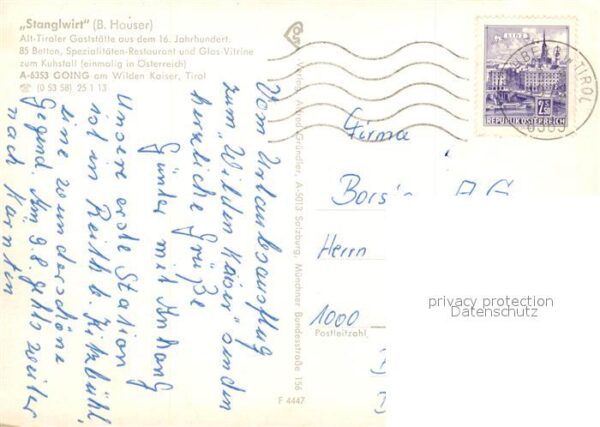 „Stanglwirt" (B. Hauser)
Alt-Tiroler Gaststätte aus dem 16. Jahrhundert.
85 Betten, Spezialitäten-Restaurant und Glas-Vitrine
zum Kuhstall (einmalig in Österreich)
A-6353 GOING am Wilden Kaiser, Tirol
☎ (0 53 58) 25 1 13
Vom Urlaubsausflug
zum „Wilden Kaiser" senden
herzliche Grüße
Günter mit Anhang
Unsere erste Station
ist in Reith b. Kitzbühl,
eine wunderschöne
Gegend. Am 9.8. gehts weiter
nach Kärnten
Verlag Gründler, A-5013 Salzburg, Münchner Bundesstraße 156
F 4447
LINZ
2.50
REPUBLIK ÖSTERREICH
TIROL
6365
Firma
Borsig AG
Herrn
1000
Postleitzahl
privacy protection
Datenschutz